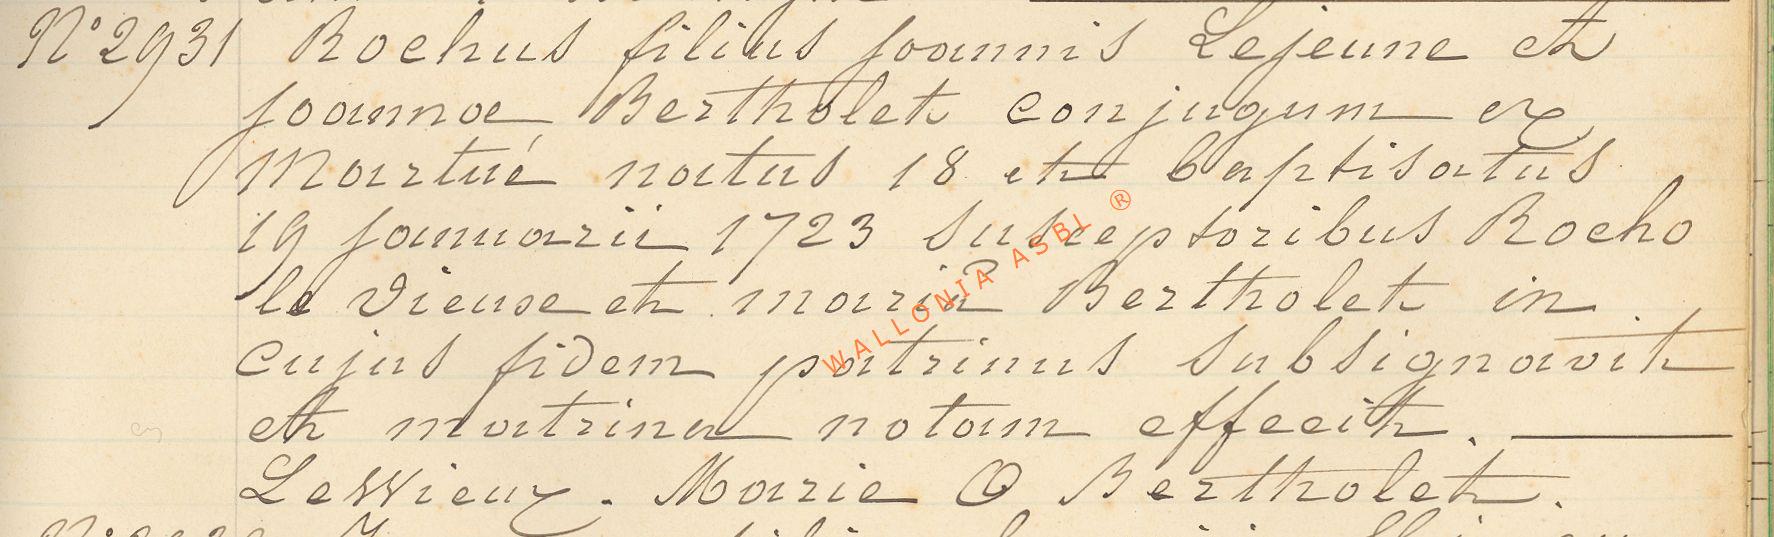 N° 2931 Rochus filius Joannis Lejeune et
Joannae Bertholet conjugum ex
Martué natus 18 et baptisatus
19 Januarii 1723 susceptoribus Rocho
le Vieuse et maria Bertholet in
cujus fidem patrinus subsignavit
et matrina notam effecit.
LeWieux. Marie O Bertholet.
WALLONIA ASBL ®